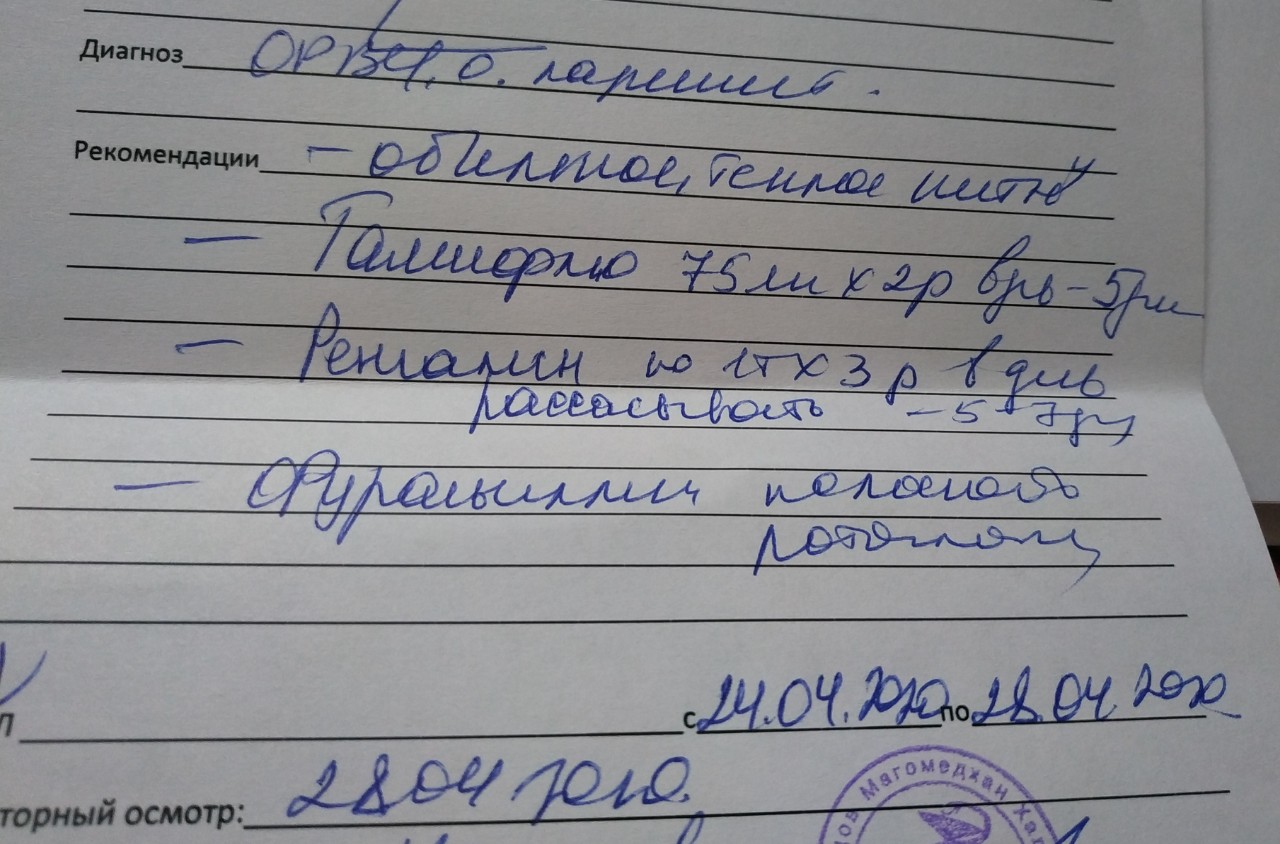 Диагноз ОРВИ, о. ларингит.
Рекомендации - обильное, теплое питьё
- Тамифлю 75мг х 2р в день - 5дн
- Ренгалин по 1т х 3 р в день
рассасывать - 5-7дн
- Фурацилин полоскать
ротоглотку
с 24.04.2020 по 28.04.2020
торный осмотр: 28 04 2020.
Магомедхан